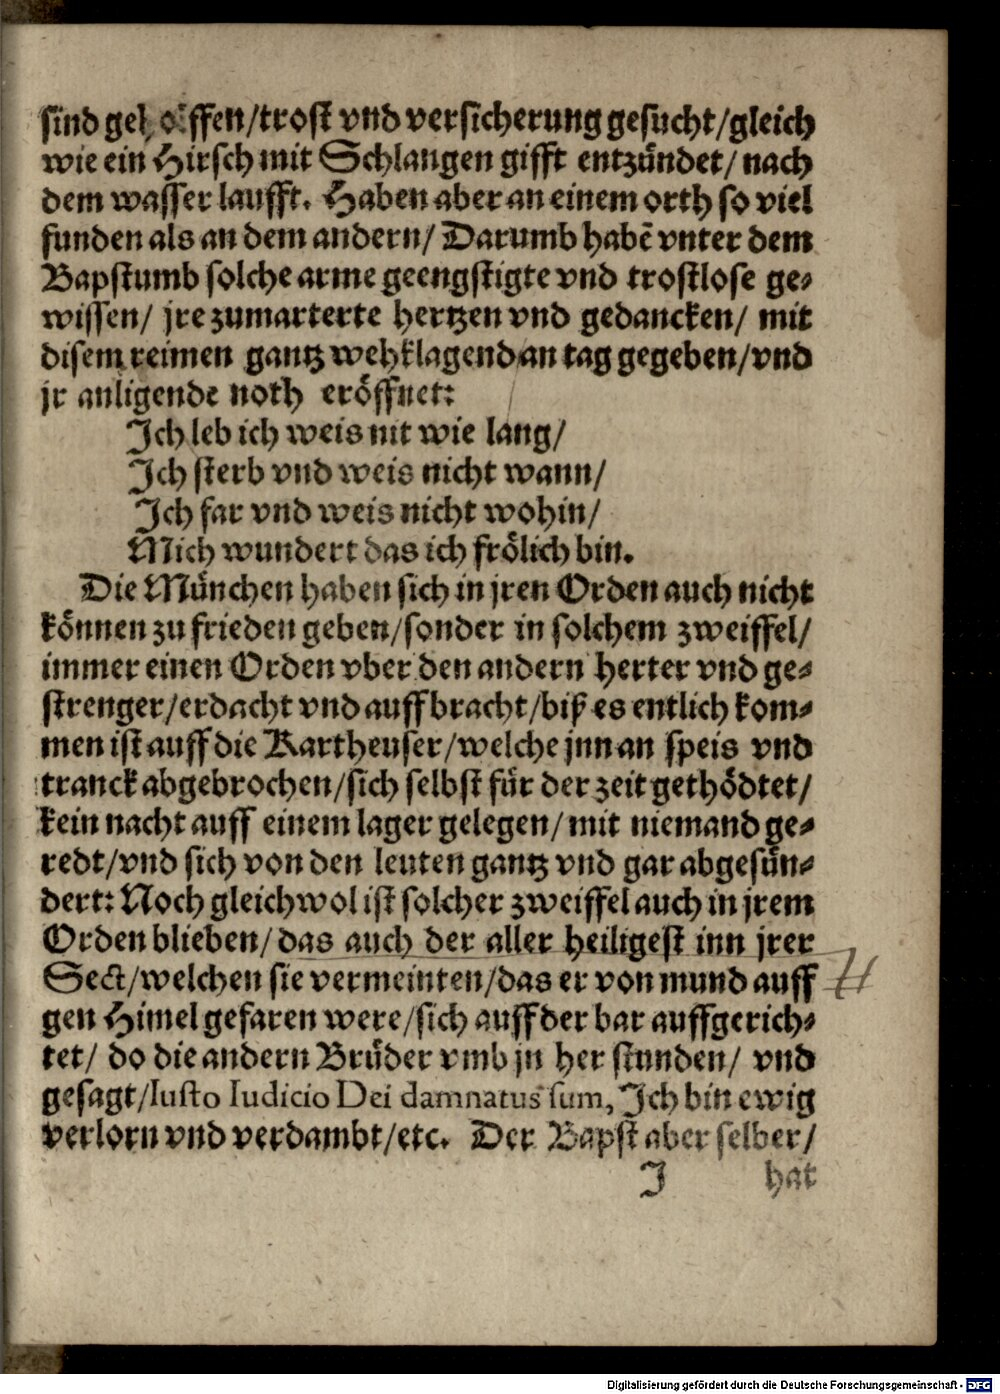 sind geloffen/trost vnd versicherung gesucht/gleich
wie ein Hirsch mit Schlangen gifft entzündet/ nach
dem wasser laufft. Haben aber an einem orth so viel
funden als an dem andern/ Darumb habē vnter dem
Bapstumb solche arme geengstigte vnd trostlose ge-
wissen/ jre zumarterte hertzen vnd gedancken/ mit
disem reimen gantz wehklagend an tag gegeben/vnd
jr anligende noth eröffnet:
Ich leb ich weis nit wie lang/
Ich sterb vnd weis nicht wann/
Ich far vnd weis nicht wohin/
Mich wundert das ich frölich bin.
Die München haben sich in jren Orden auch nicht
können zu frieden geben/sonder in solchem zweiffel/
immer einen Orden vber den andern herter vnd ge-
strenger/erdacht vnd auffbracht/biß es entlich kom-
men ist auff die Kartheuser/welche jnn an speis vnd
tranck abgebrochen/sich selbst für der zeit gethödtet/
kein nacht auff einem lager gelegen/ mit niemand ge-
redt/vnd sich von den leuten gantz vnd gar abgesün-
dert: Noch gleichwol ist solcher zweiffel auch in jrem
Orden blieben/ das auch der aller heiligest inn jrer
Sect/welchen sie vermeinten/das er von mund auff
gen Himel gefaren were/sich auff der bar auffgerich-
tet/ do die andern Brüder vmb jn her stunden/ vnd
gesagt/Iusto Iudicio Dei damnatus sum, Ich bin ewig
verlorn vnd verdambt/etc. Der Bapst aber selber/
J hat
Digitalisierung gefördert durch die Deutsche Forschungsgemeinschaft - DFG